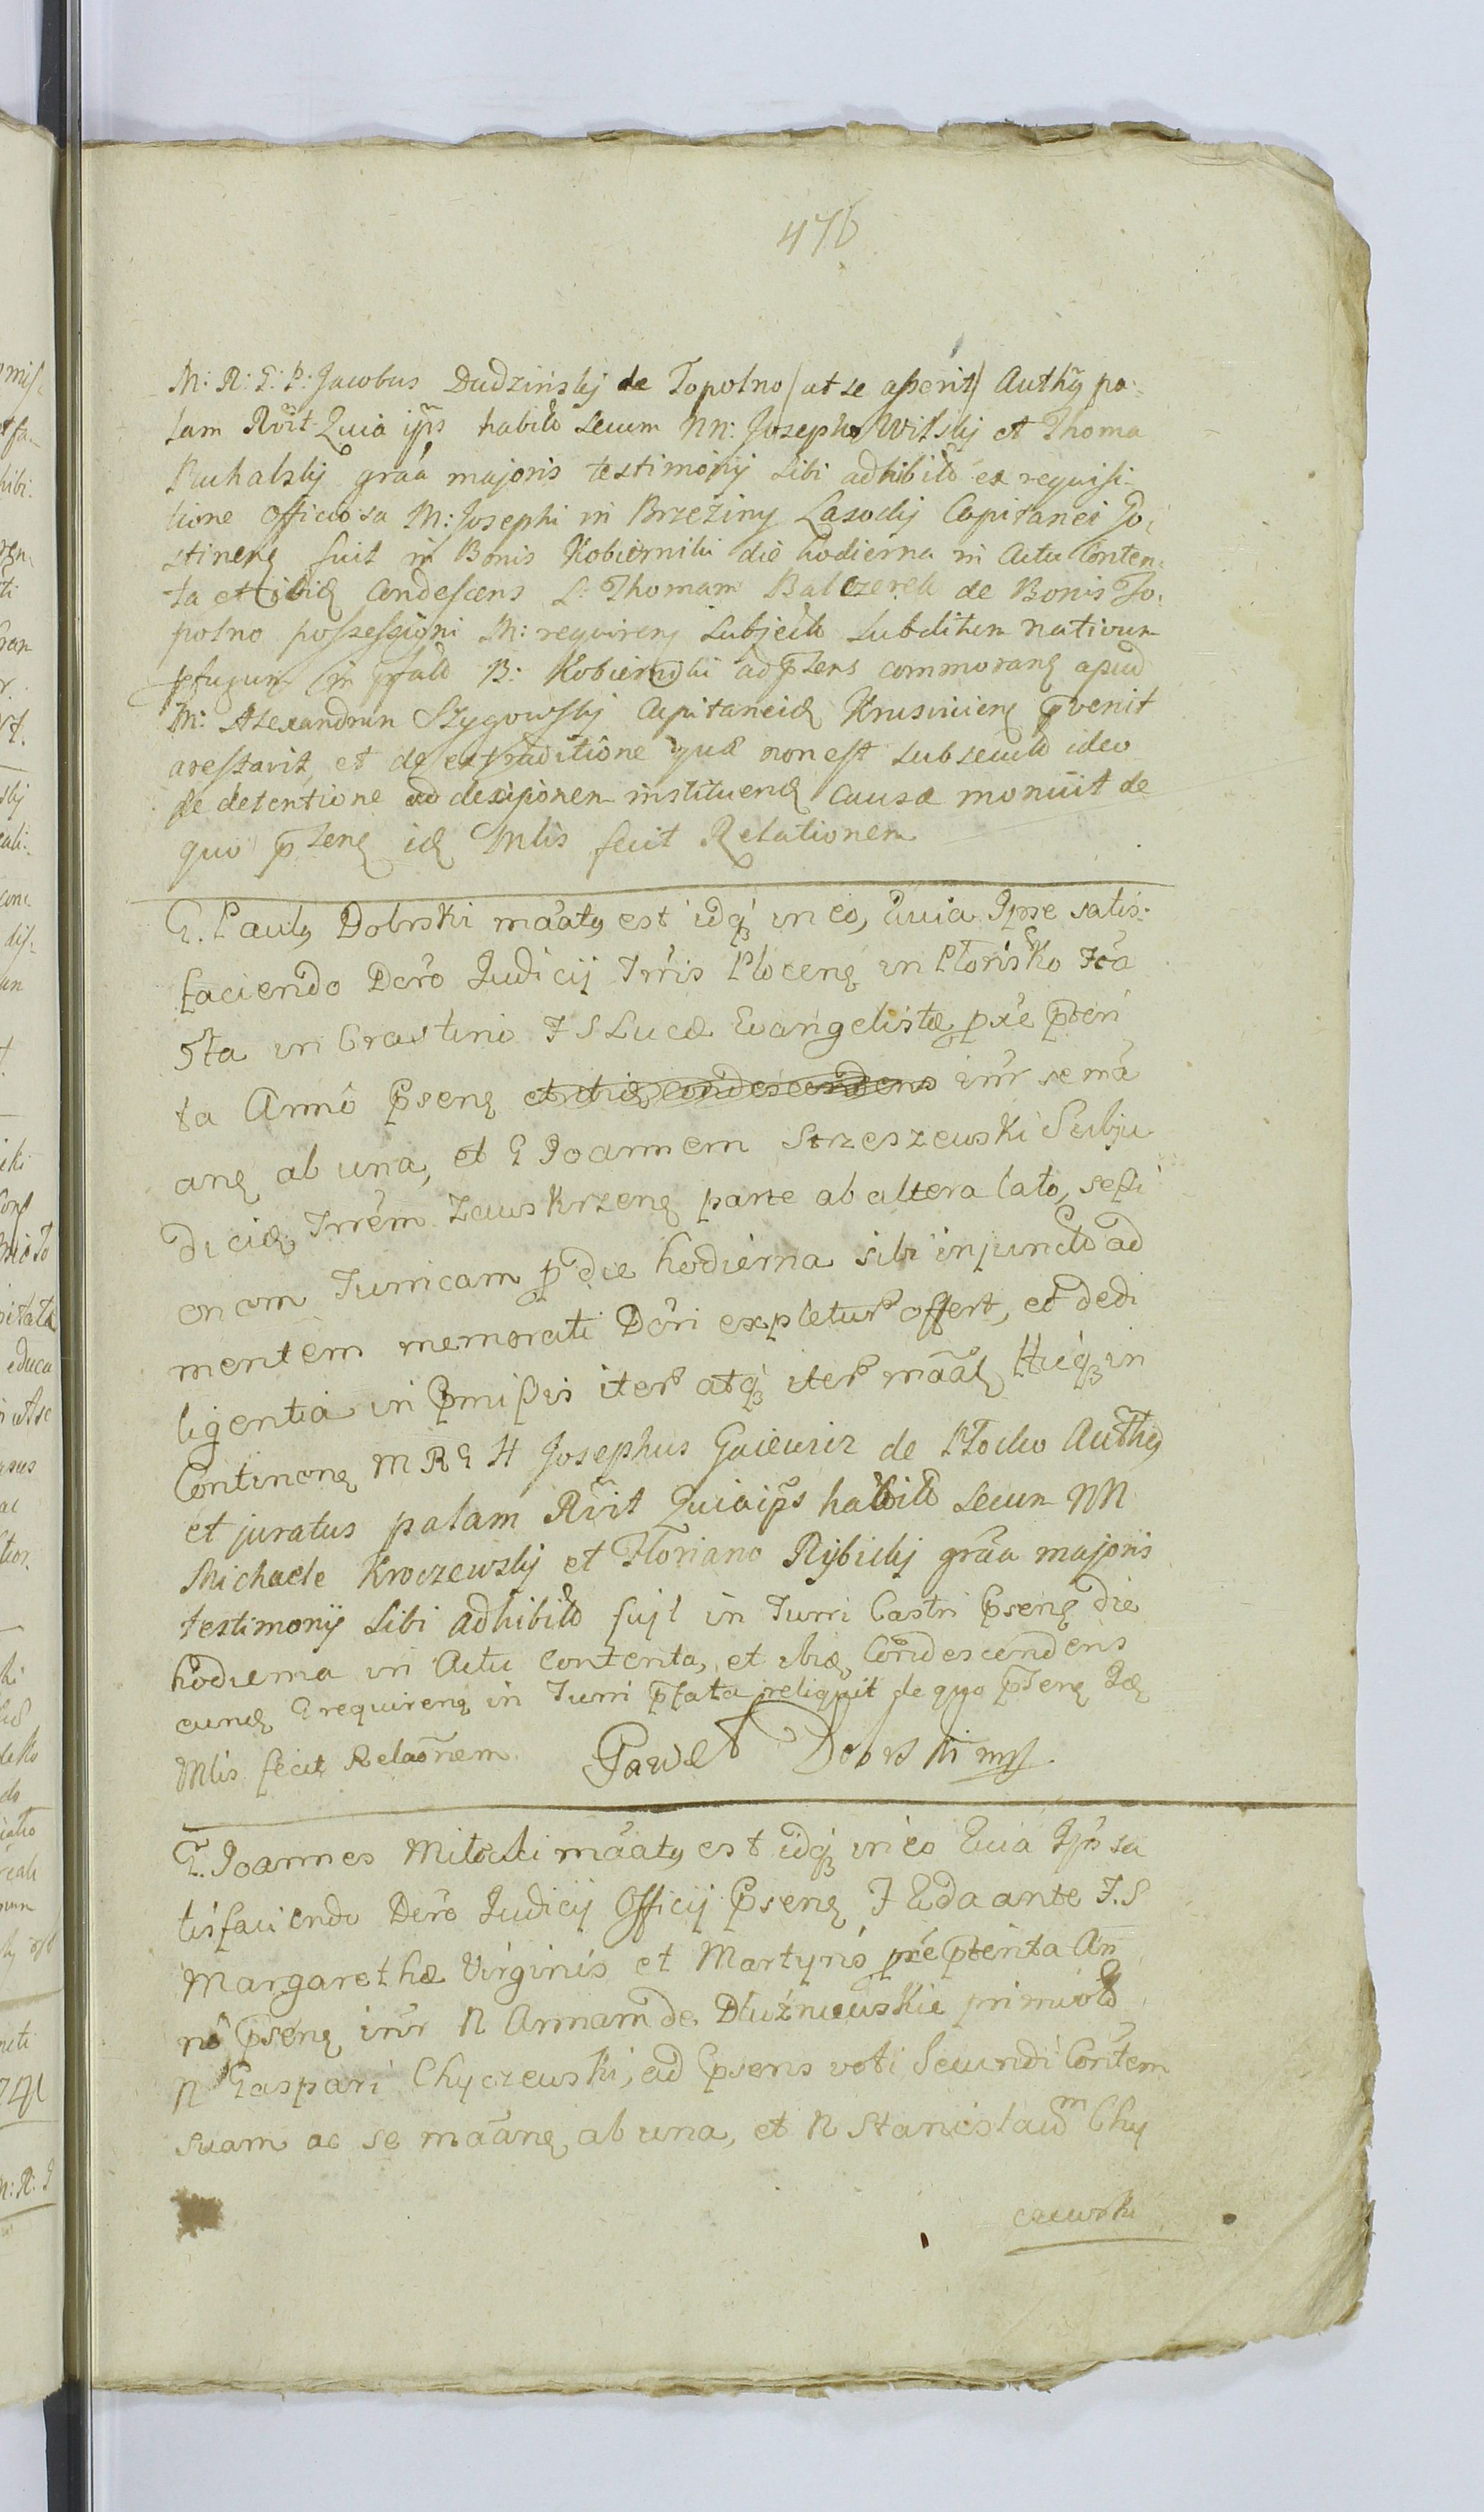 476
M: R: G: P: Jacobus Dudzinskij de Topolno (ut se asserit) Authq pa-
lam Rvit Quia ips habito secum NN: Josepho Wilskij et Thoma
Ruhalskij graa majoris testimonij sibi adhibito ex requisi-
tione officiosa M: Josephi in Brzeziny Lasockij Capitanei Go-
stinenę fuit in Bonis Kobiernihi die hodierna in Actu Conten-
ta et ibid Condescens L: Thomam Balczerek de Bonis To-
polno possessioni M: requirenę subjecto subditum nativum
pfugum in pfato B: Kobiernihi ad pstens commoranę apud
M: Alexandrum Szygowskij Capitaneid Krusvicienę pvenit
arestavit, et de extraditione quæ non est subsecuta ideo
de detentione ad decisionem instituendę causæ monuit de
quo pstenę id Mlis fecit Relationem
G. Paulq Dobrski máatq est idq in eo, Quia Ipse satis-
faciendo Dcro Judicij Trris Plocenę in Płońsko Fra
5ta in Crastino F S Lucæ Evangelistæ pxe pteri
ta Anno Psenę et ibid condescendens intr se ma
anę ab una, et G Joannem Strzeszewski Subju
dicid Trrem Zawskrzenę parte ab altera lato, sessi
onem Turricam p die hodierna sibi injuncta ad
mentem memorati Dcri expletur offert, et de di
ligentia in Pmissis iter atq iter máatq Huiq in
Continenę M R G H Josephus Gaiewicz de Płocko Authq
et juratus palam Rvit Quia ips habito secum NN
Michaele Kroczewskij et Floriano Rijbickij graa majoris
testimonij sibi adhibito fuit in Turri Castri Psenę die
hodierna in Actu contenta, et ibid Condescendens
eundę G requirenę in Turri pfata reliquit de quo pstenę Id
Mlis fecit Relaonem. Paweł Dobrski mp
G. Joannes Miłocki máatq est idq in eo Quia Ips sa
tisfaciendo Dcro Judicij Officij Psenę F 2da ante F. S
Margarethæ Virginis et Martyris pxe pterita An
no Psenę intr N Annam de Dłużniewskie primivoto
N Gaspari Chyczewski, ad Psens voti Secundi Contem
suam ac se máanę ab una, et N Stanislaum Chy
czewski